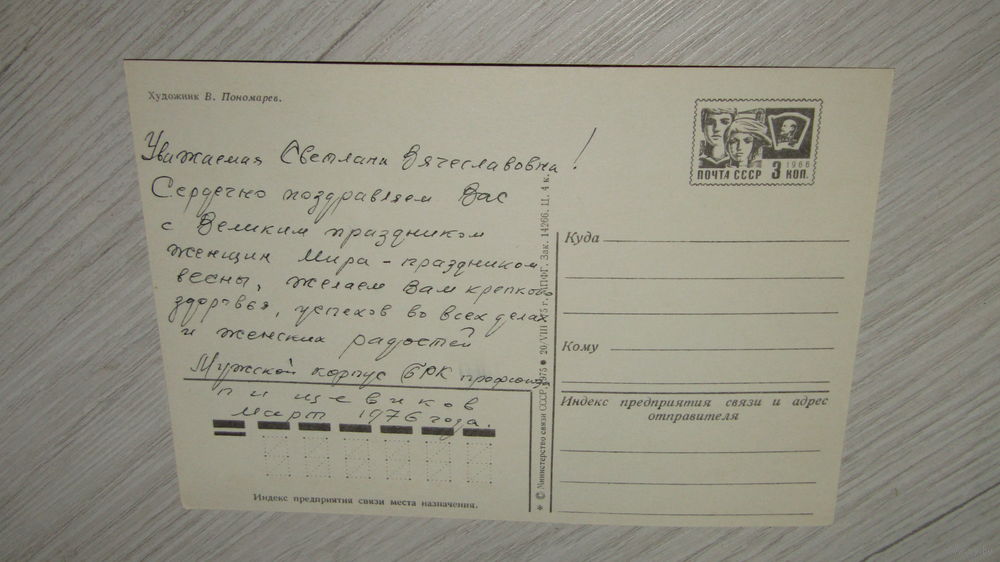 Художник В. Пономарев.
Уважаемая Светлана Вячеславовна!
Сердечно поздравляем Вас
с Великим праздником
женщин Мира - праздником
весны, желаем Вам крепкого
здоровья, успехов во всех делах
и женских радостей
Мужской корпус БРК профсоюза
пищевиков
Март 1976 года.
Индекс предприятия связи места назначения.
* © Министерство связи СССР, 1975 ● 20/VIII 75 г. МПФГ. Зак. 14266. Ц. 4 к.
ПОЧТА СССР 3 КОП.
1966
Куда
Кому
Индекс предприятия связи и адрес
отправителя